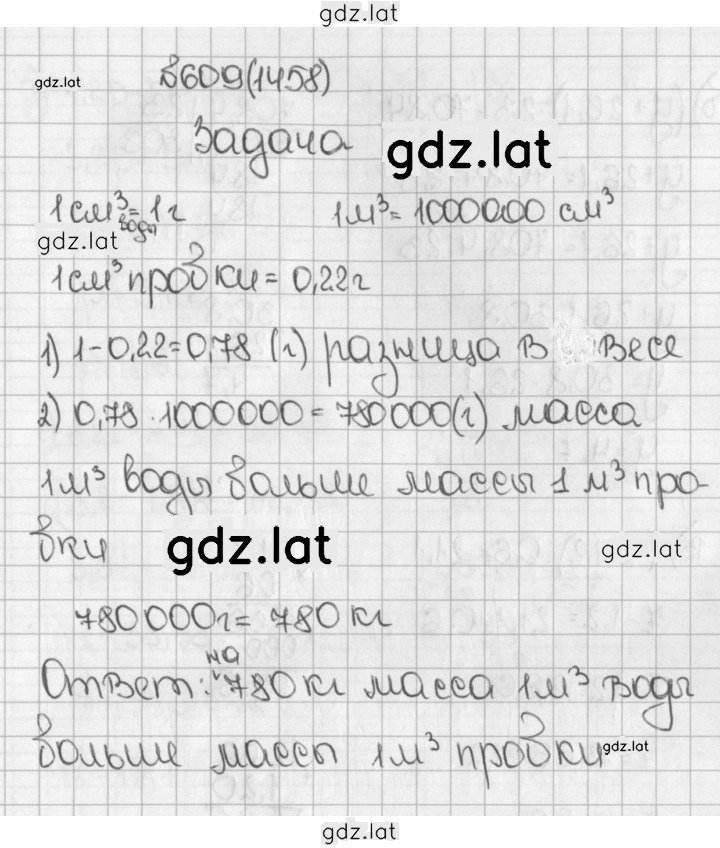 gdz.lat
№609(1458)
gdz.lat
Задача
gdz.lat
1см³ воды = 1г 1м³ = 1000000 см³
gdz.lat
1см³ пробки = 0,22г
1) 1-0,22=0,78 (г) разница в весе
2) 0,78 · 1000000 = 780000(г) масса
1м³ воды больше массы 1 м³ про-
бки
gdz.lat gdz.lat
780000г = 780 кг
Ответ: на 780 кг масса 1м³ воды
больше массы 1м³ пробки
gdz.lat
gdz.lat